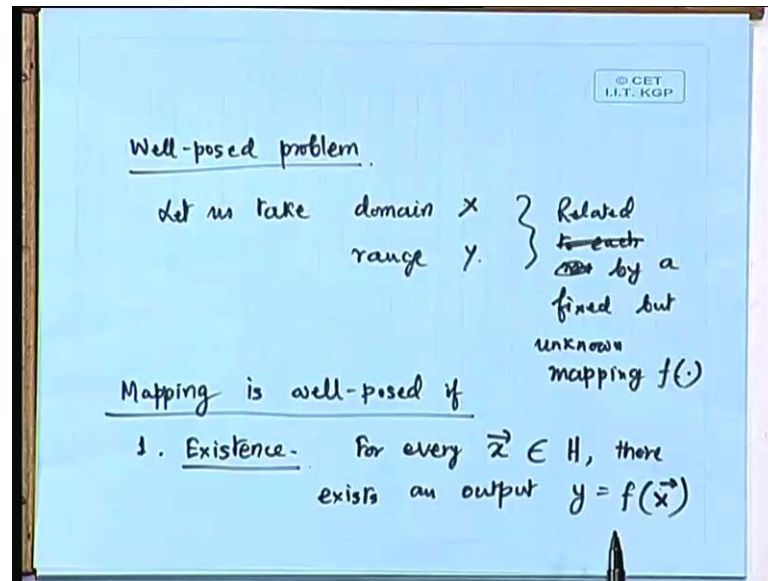 © CET
I.I.T. KGP
Well-posed problem.
Let us take domain X } Related
range Y. to each
by a
fixed but
unknown
mapping f(·)
Mapping is well-posed if
1. Existence- For every x⃗ ∈ H, there
exists an output y = f(x⃗)